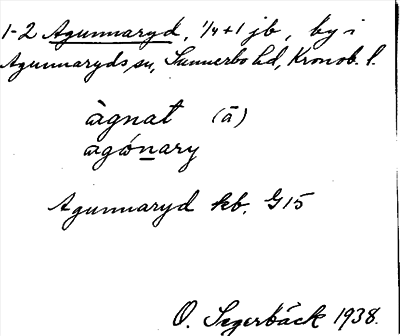 1-2 Agunnaryd, 1/4+1 jb, by i
Agunnaryds sn, Sunnerbo hd, Kronob. l.
àgnat (ā)
agónary
Agunnaryd kb. G15
O. Segerbäck 1938.